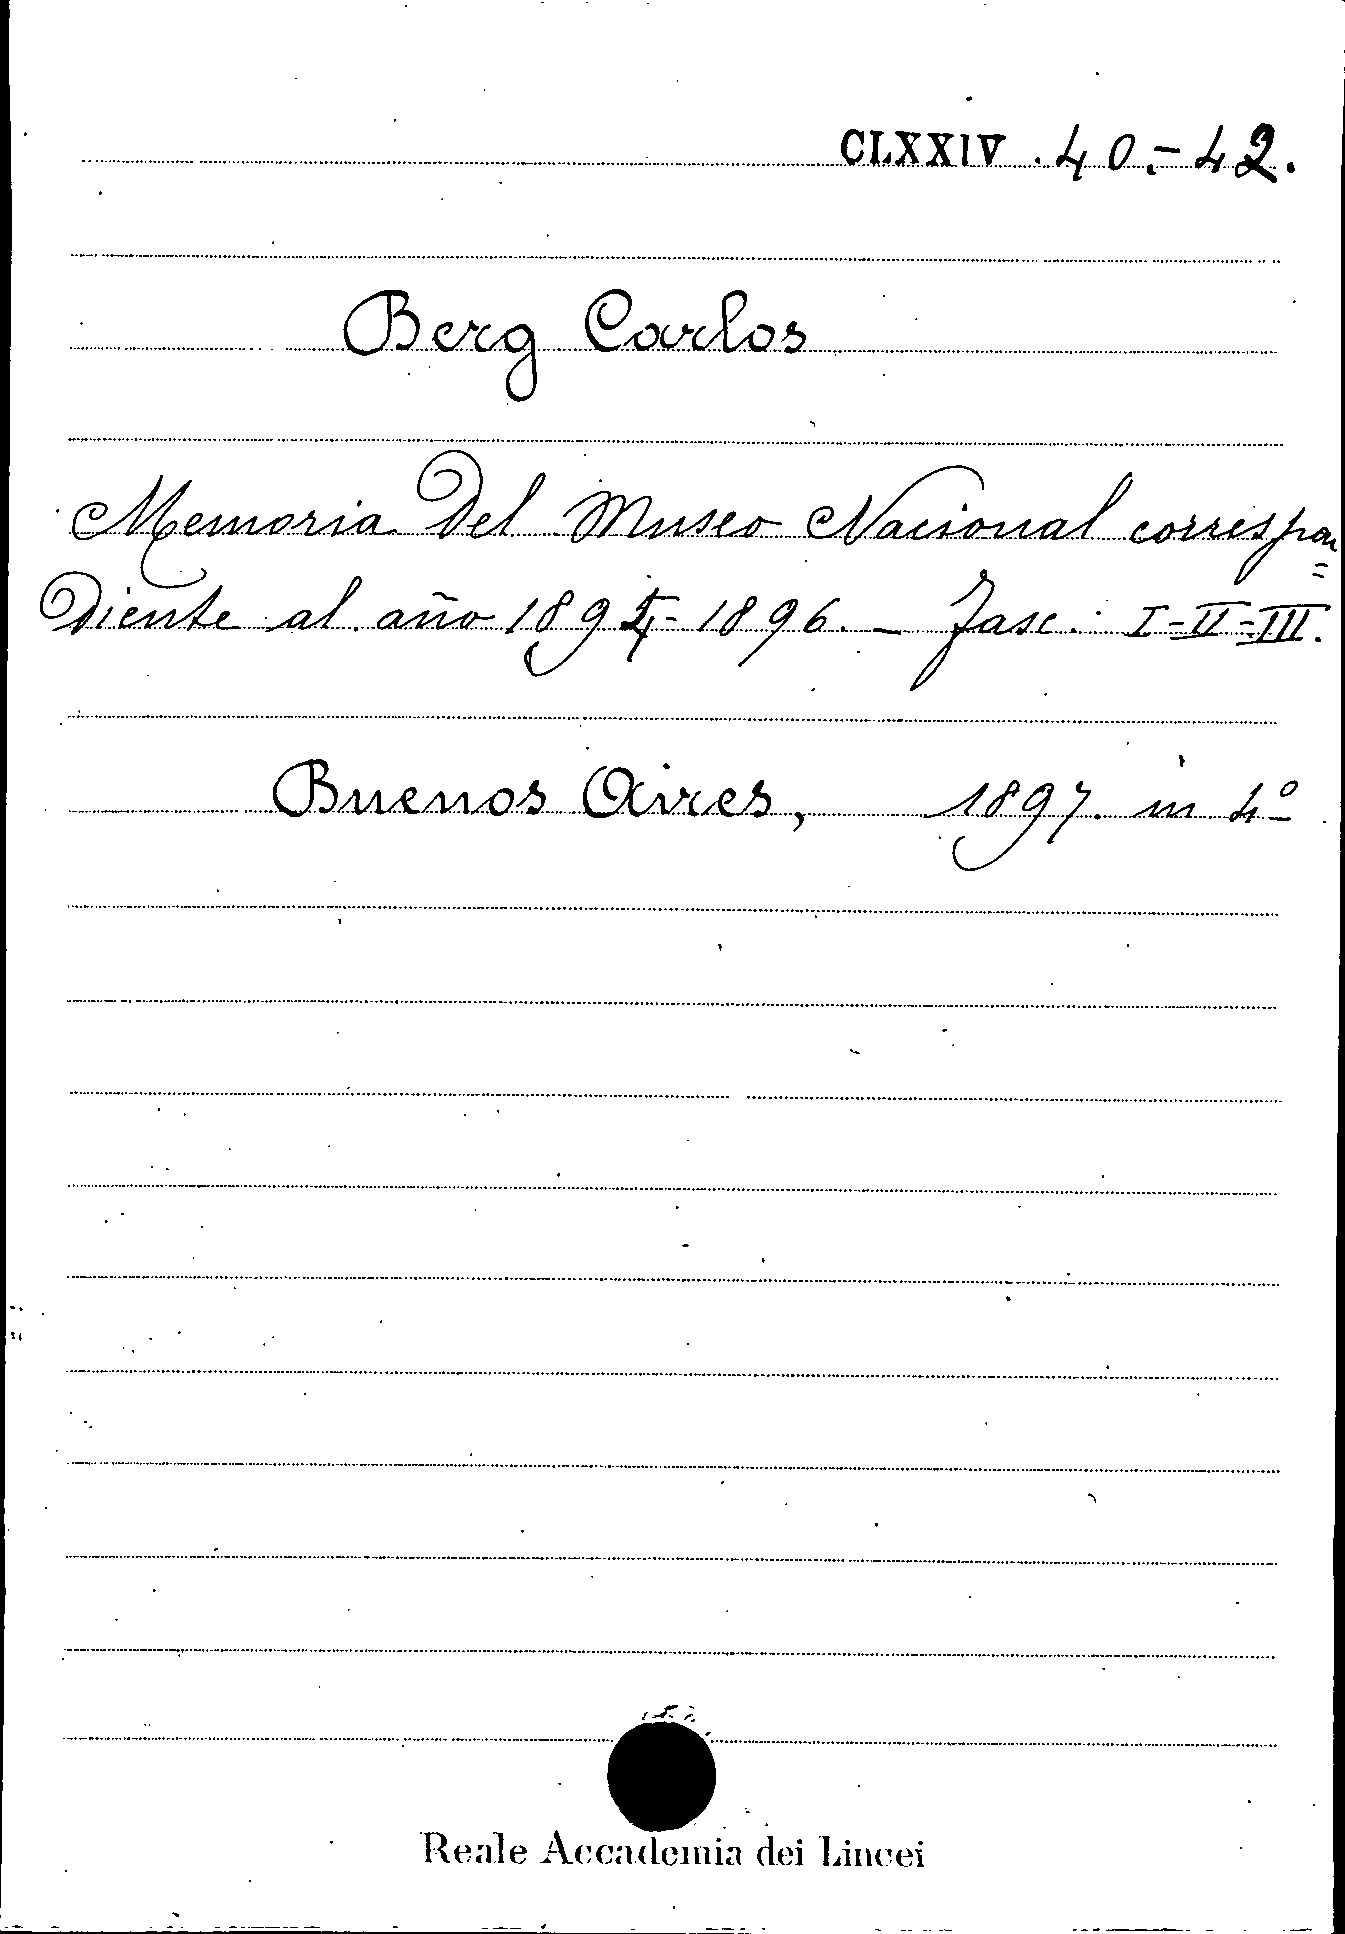 CLXXIV . 40.-42.
Berg Carlos
Memoria del Museo Nacional correspon=
diente al año 1894-1896. - Fasc. I-II-III.
Buenos Aires, 1897. in 4º
Reale Accademia dei Lincei